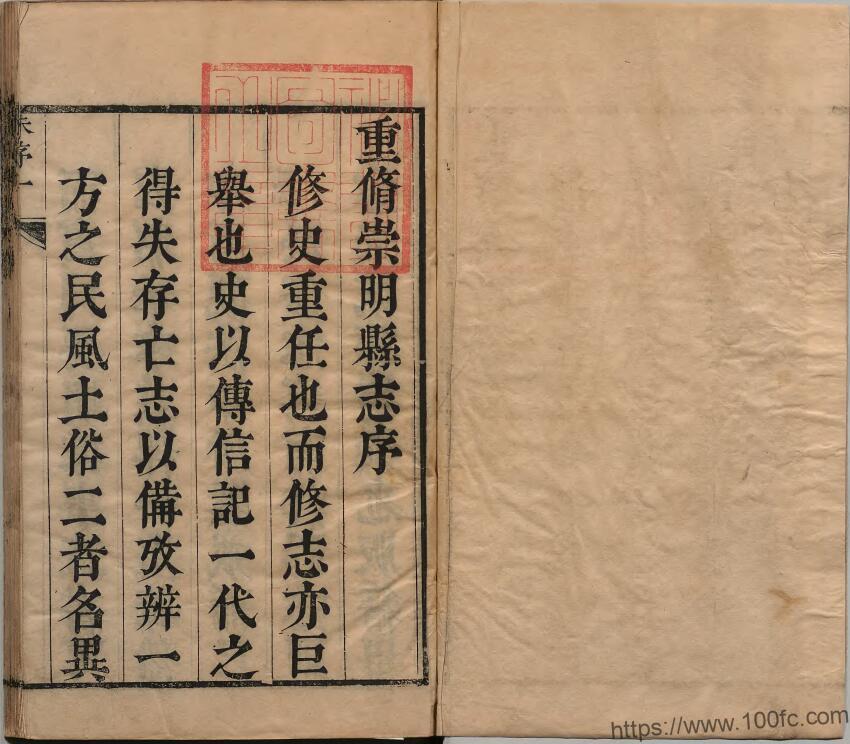 重脩崇明縣志序
修史重任也而修志亦巨
舉也史以傳信記一代之
得失存亡志以備攷辨一
方之民風土俗二者名異
序一
https://www.100fc.com